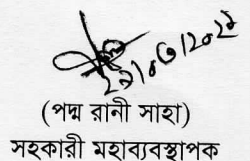 ২৯/০৩/২০২২
(পদ্ম রানী সাহা)
সহকারী মহাব্যবস্থাপক